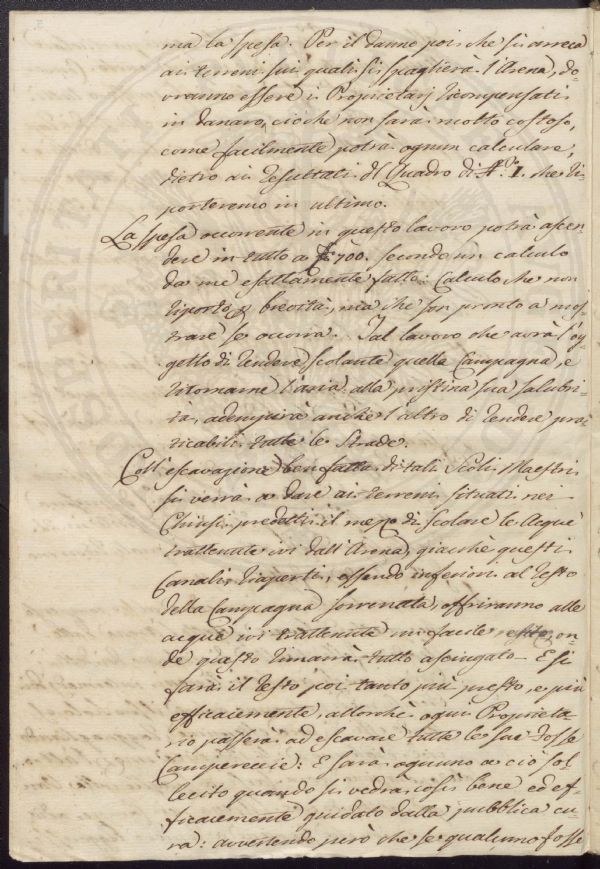 ma la spesa. Per il danno poi, che si arreca
ai terreni sui quali si spaglierà l'Arena, do-
vranno essere i Proprietarj ricompensati
in danaro, ciochè non sarà molto costoso,
come facilmente potrà ognun calculare,
dietro ai resultati del Quadro di N.° I. che ri-
porteremo in ultimo.
La spesa occorrente in questo lavoro potrà ascen-
dere in tutto a 700. secondo un calculo
da me esattamente fatto: Calculo che non
riporto p brevità, ma che son pronto a mos-
trare se occorra. Tal lavoro che avrà l'og-
getto di rendere scolante quella Campagna, e
ritornarne l'aria alla pristina sua salubri-
tà, adempirà anche l'altro di rendere pra-
ticabili tutte le Strade.
Coll'escavazione ben fatta di tali Scoli Maestri
si verrà a dare ai terreni situati nei
Chiusi predetti il mezzo di scolare le Acque
trattenute ivi dall'Arena, giacchè questi
Canali riaperti, essendo inferiori al resto
della Campagna sorrenata, offriranno alle
acque ivi trattenute un facile esito, on-
de questo rimarrà tutto asciugato. E si
farà il resto poi tanto più presto, e più
efficacemente, allorchè ogni Proprieta-
rio passerà ad escavare tutte le sue Fosse
Camperecce: E sarà ognuno a ciò sol-
lecito quando si vedrà così bene ed ef-
ficacemente guidato dalla pubblica cu-
ra: avvertendo però che se qualcuno fosse